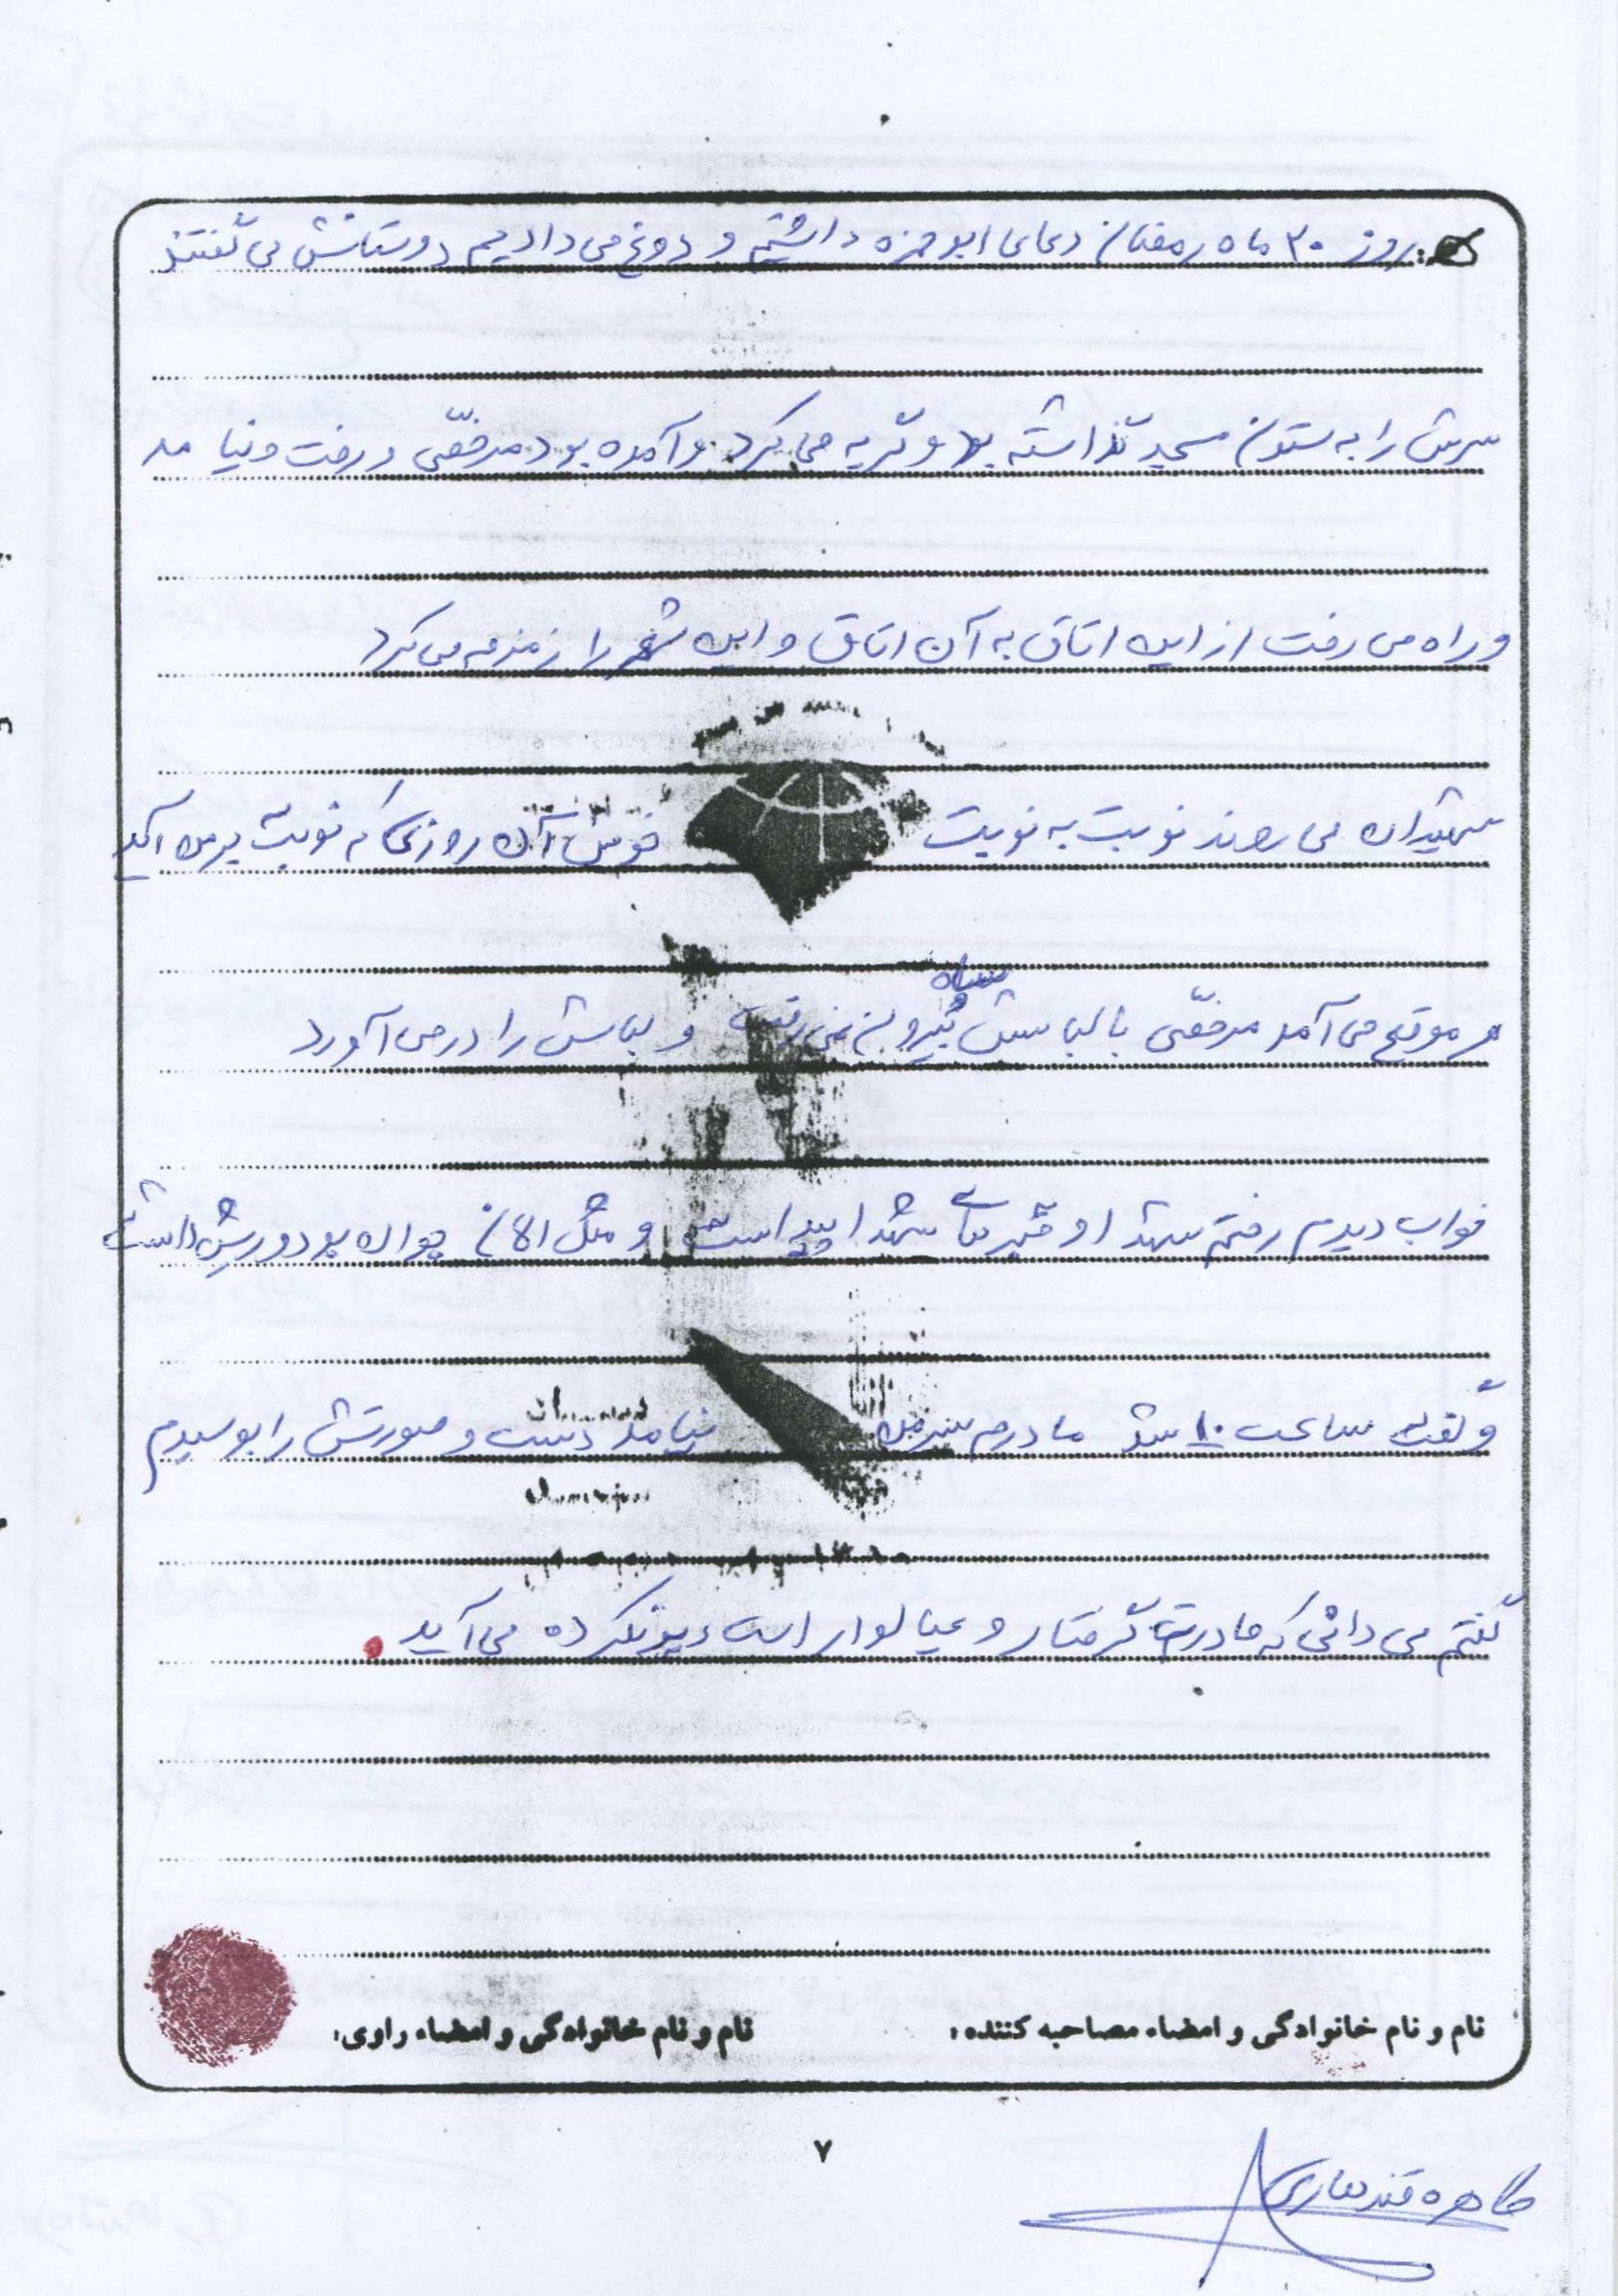 روز ۳۰ ماه رمضان دعای ابوحمزه داشتیم و دوغ می دادیم دوستانش می گفتند
سرش را به ستون مسجد گذاشته بود و گریه می کرد و آمده بود مرخصّی و رفت و نیامد
و راه می رفت از این اتاق به آن اتاق و این شعر را زمزمه می کرد
شهیدان می روند نوبت به نوبت خوش آن روزی که نوبت بر من آید
هر موقع می آمد مرخصّی با لباس سپاه بیرون نمی رفت و لباسش را در می آورد
خواب دیدم رفتم شهدا و قبرهای شهدا پیداست و مثل الان جوان بود و ریش داشت
و گفت ساعت ۱۰ شد مادرم سر من نیامد دست و صورتش را بوسیدم
گفتم می دانی که مادرت گرفتار و عیالوار است دیر کرده می آید.
نام و نام خانوادگی و امضاء مصاحبه کننده: نام و نام خانوادگی و امضاء راوی:
۷
طاهره قندهاری